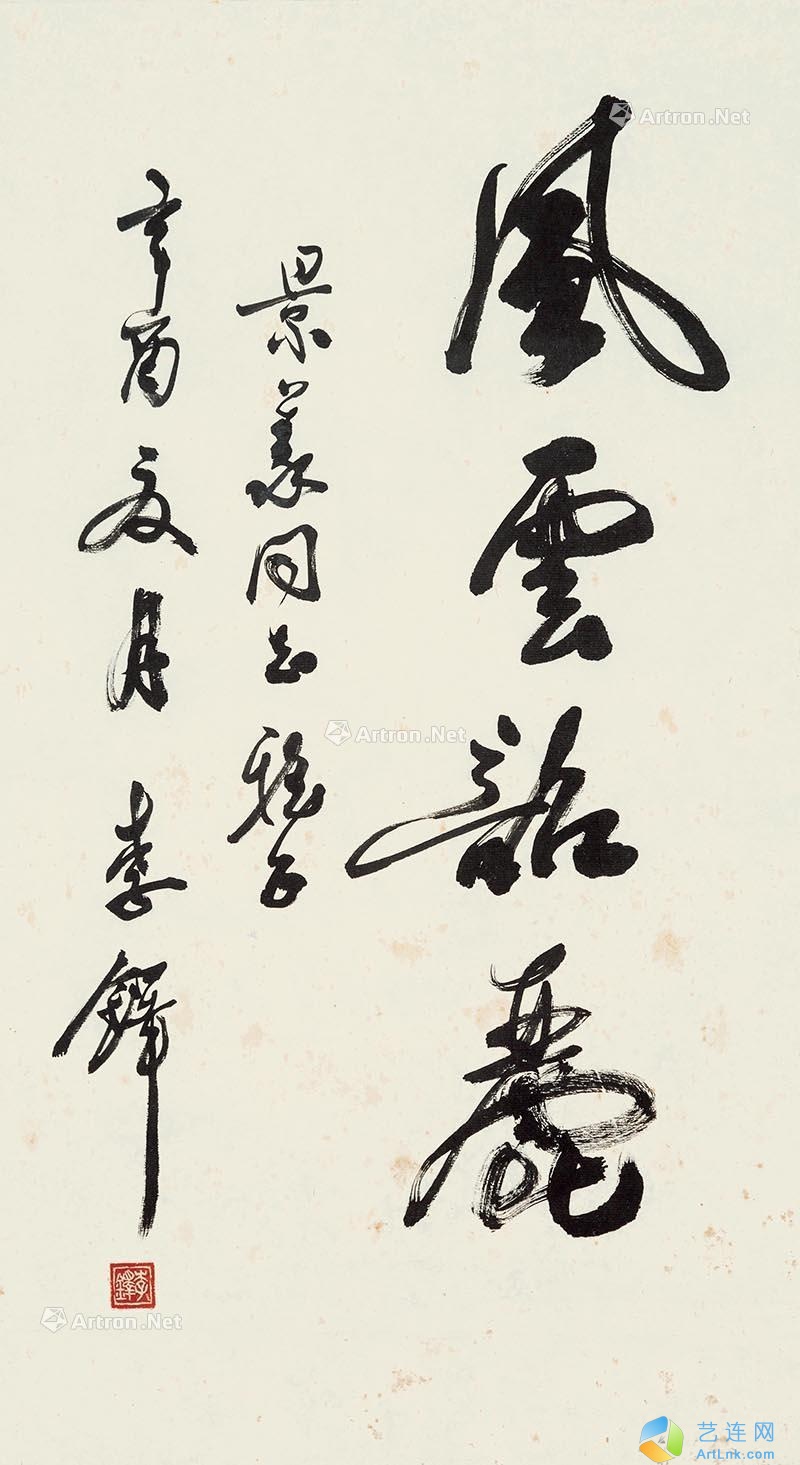 風雲韶麗
景同志雅正
辛酉夏月 李鐸
李鐸
Artron.Net
Artron.Net
Artron.Net
艺连网
ArtLnk.com